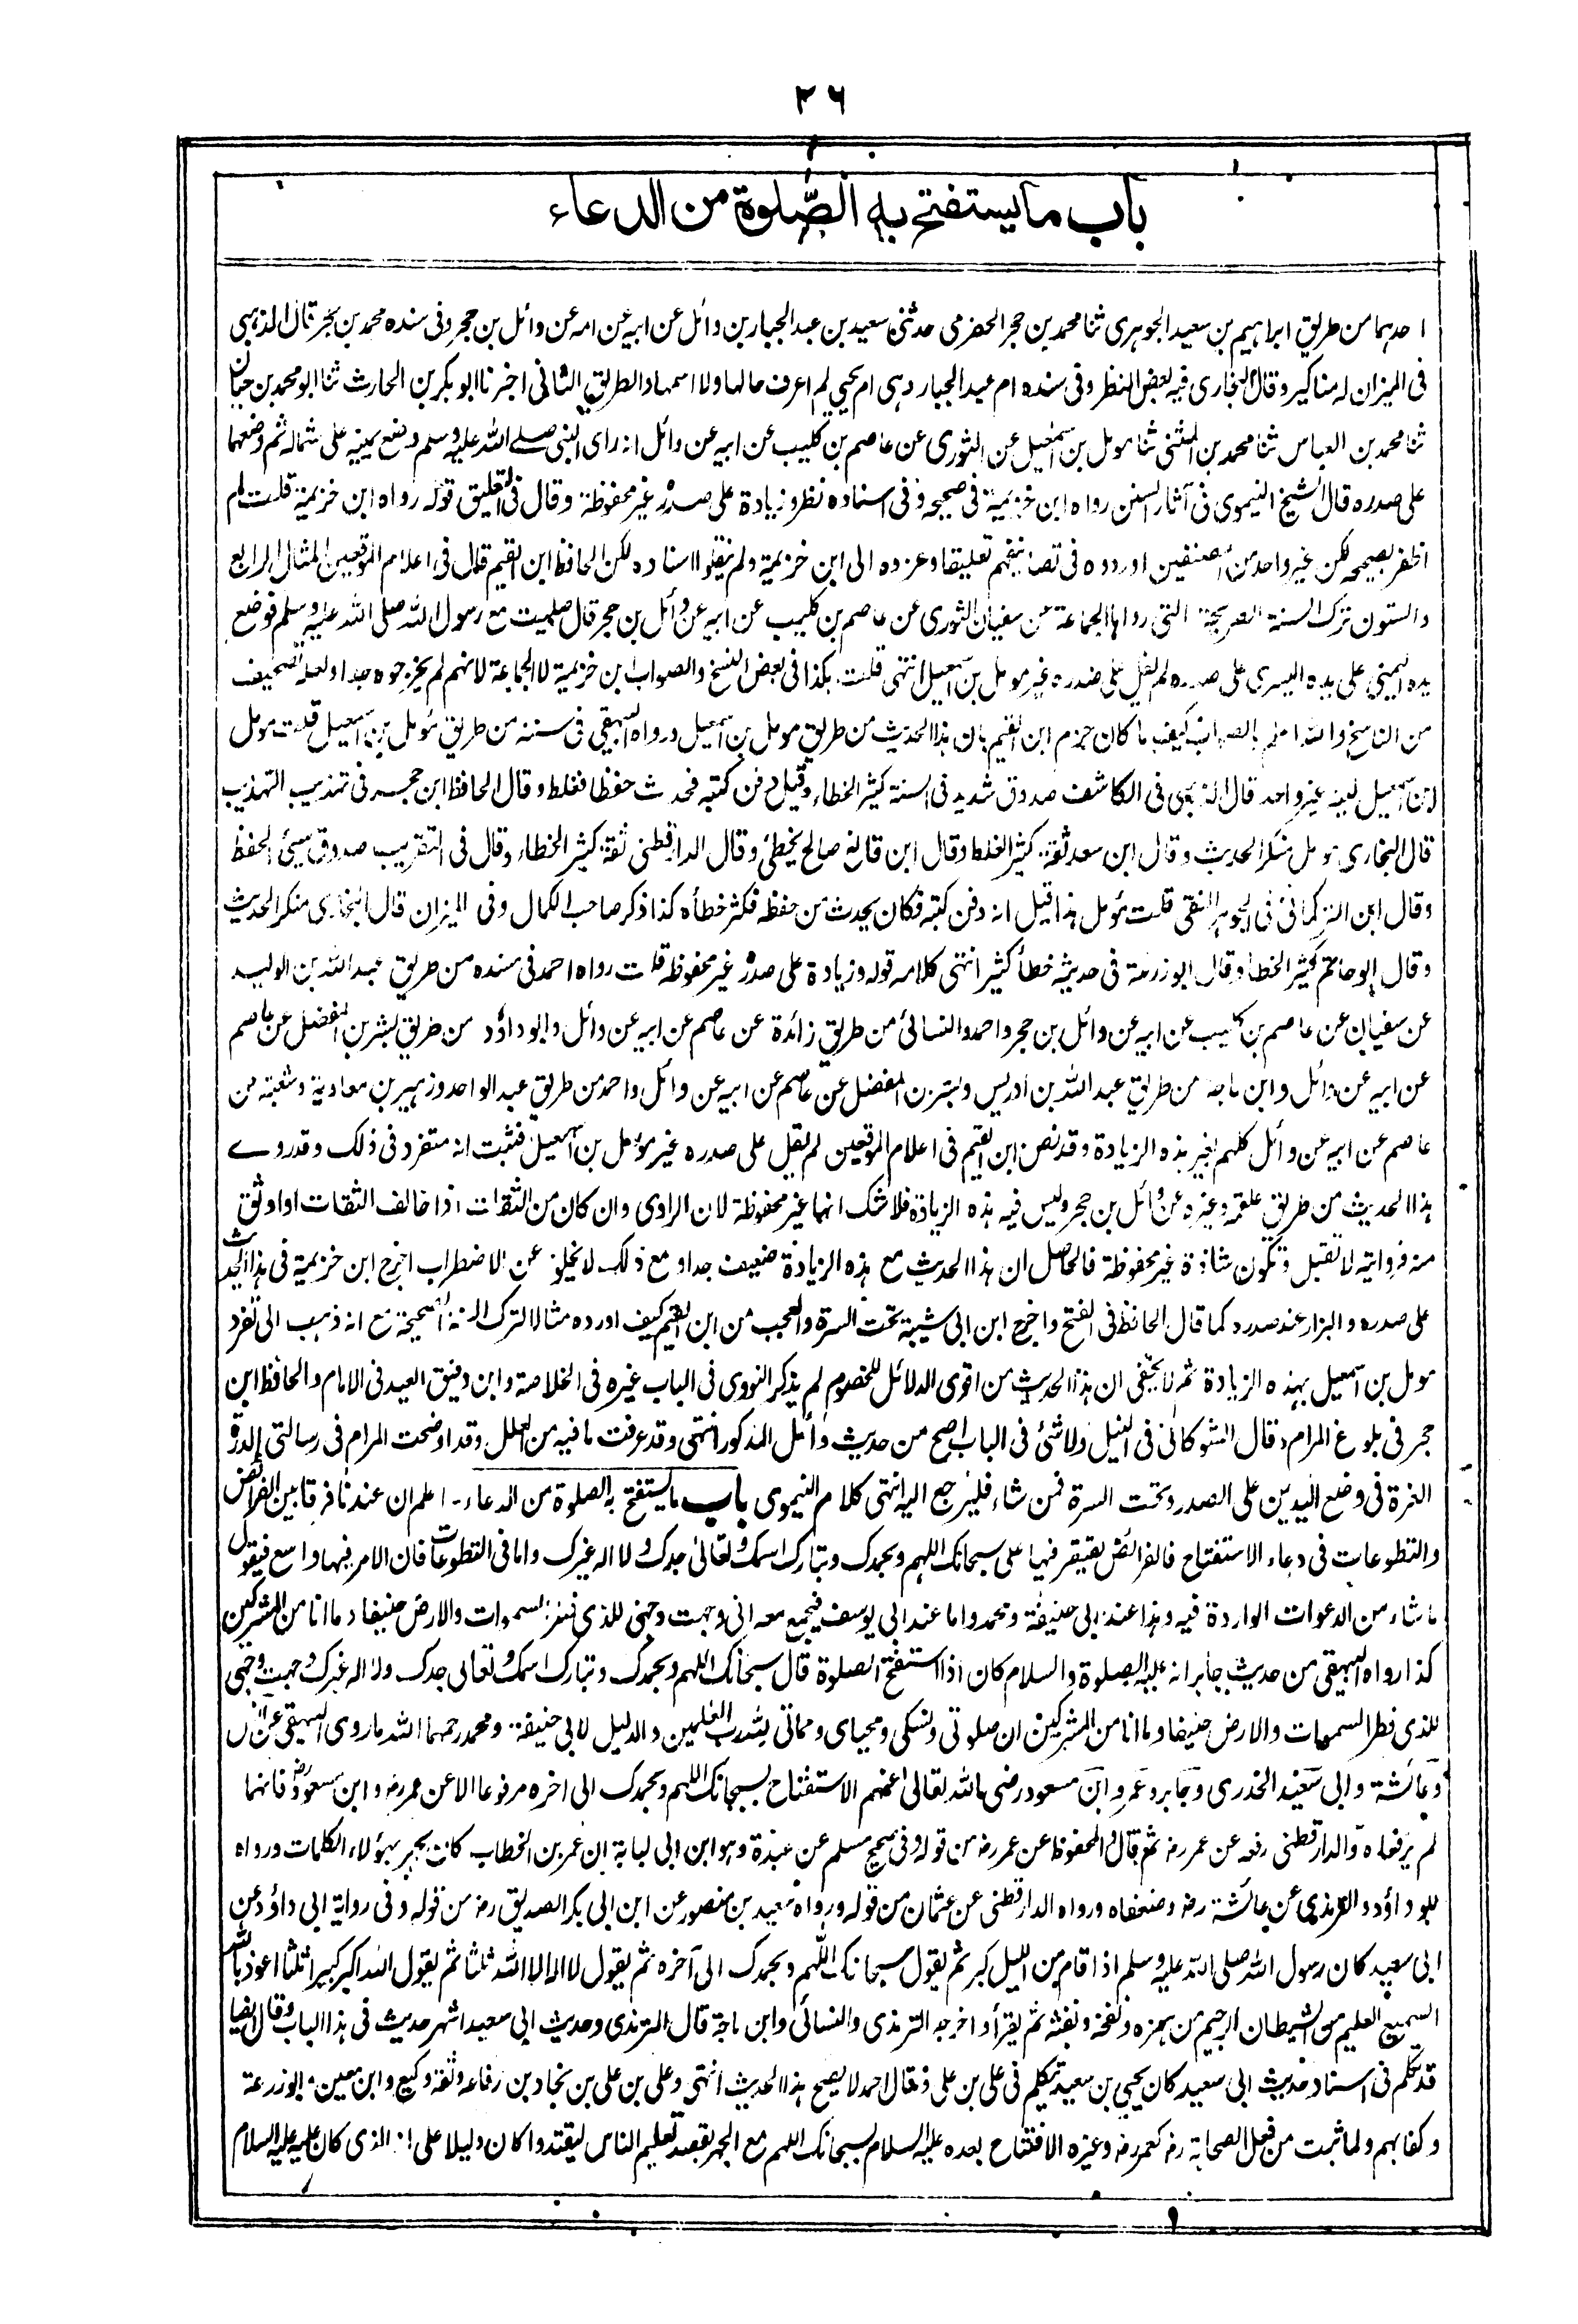 ٢٦
باب ما يستفتح به الصلوة من الدعاء
احدهما من طريق ابراهيم بن سعيد الجوهرى ثنا محمد بن حجر الحضرمى حدثنى سعيد بن عبد الجبار بن وائل عن ابيه عن امه عن وائل بن حجر وفى سنده محمد بن حجر قال الذهبى
فى الميزان له مناكير وقال البخارى فيه بعض النظر وفى سنده ام عبد الجبار وهى ام يحيى لم اعرف حالها ولا اسمها والطريق الثانى اخبرنا ابو بكر بن الحارث ثنا ابو محمد بن حيان
ثنا محمد بن العباس ثنا محمد بن المثنى ثنا مومل بن اسمعيل عن الثورى عن عاصم بن كليب عن ابيه عن وائل انه راى النبى صلے الله عليه وسلم وضع يمينه على شماله ثم وضعهما
على صدره قال الشيخ النيموى فى آثار السنن رواه ابن خزيمة فى صحيحه وفى اسناده نظر وزيادة على صدره غير محفوظة وقال فى التعليق قوله رواه ابن خزيمة قلت لم
اظفر بصحيحه لكن غير واحد من المصنفين اوردوه فى تصانيفهم تعليقا وعزوه الى ابن خزيمة ولم ينقلوا اسناده لكن الحافظ ابن القيم قال فى اعلام الموقعين المثال الرابع
والستون ترك السنة الصريحة التى رواها الجماعة عن سفيان الثورى عن عاصم بن كليب عن ابيه عن وائل بن حجر قال صليت مع رسول الله صلى الله عليه وسلم فوضع
يده اليمنى على يده اليسرى على صدره لم يقل على صدره غير مومل بن اسمعيل انتهى قلت هكذا فى بعض النسخ والصواب ابن خزيمة لا الجماعة لانهم لم يخرجوه جدا ولعله تصحيف
من الناسخ والله اعلم بالصواب كيف ما كان جزم ابن القيم بان هذا الحديث من طريق مومل بن اسمعيل ورواه البيهقى فى سننه من طريق مؤمل بن اسمعيل قلت مومل
ابن اسمعيل لينه غير واحد قال الذهبى فى الكاشف صدوق شديد فى السنة كثير الخطاء وقيل دفن كتبه فحدث حفظا فغلط وقال الحافظ ابن حجر فى تهذيب التهذيب
قال البخارى مومل منكر الحديث وقال ابن سعد ثقة كثير الغلط وقال ابن قانع صالح يخطئ وقال الدارقطنى ثقة كثير الخطاء وقال فى التقريب صدوق سيئ الحفظ
وقال ابن التركمانى فى الجوهر النقى قلت مؤمل هذا قيل انه دفن كتبه فكان يحدث من حفظه فكثر خطأه كذا ذكر صاحب الكمال وفى الميزان قال البخارى منكر الحديث
وقال ابو حاتم كثير الخطأ وقال ابو زرعة فى حديثه خطأ كثير انتهى كلامه قوله وزيادة على صدره غير محفوظة قلت رواه احمد فى مسنده من طريق عبد الله بن الوليد
عن سفيان عن عاصم بن كليب عن ابيه عن وائل بن حجر واحمد والنسائى من طريق زائدة عن عاصم عن ابيه عن وائل وابو داؤد من طريق بشر بن المفضل عن عاصم
عن ابيه عن وائل وابن ماجه من طريق عبد الله بن ادريس وبشر بن المفضل عن عاصم عن ابيه عن وائل واحمد من طريق عبد الواحد وزهير بن معاوية وشعبة عن
عاصم عن ابيه عن وائل كلهم بغير هذه الزيادة وقد نص ابن القيم فى اعلام الموقعين لم يقل على صدره غير مؤمل بن اسمعيل فثبت انه متفرد فى ذلك وقد روے
هذا الحديث من طريق علقمة وغيره عن وائل بن حجر وليس فيه هذه الزيادة فلا شك انها غير محفوظة لان الراوى وان كان من الثقات اذا خالف الثقات او اوثق
منه فروايته لا تقبل وتكون شاذة غير محفوظة فالحاصل ان هذا الحديث مع هذه الزيادة ضعيف جدا ومع ذلك لا يخلو عن الاضطراب اخرج ابن خزيمة فى هذا الحديث
على صدره والبزار عند صدره كما قال الحافظ فى الفتح واخرج ابن ابى شيبة تحت السرة والعجب من ابن القيم كيف اورده مثالا لترك السنة الصحيحة مع انه ذهب الى تفرد
مومل بن اسمعيل بهذه الزيادة ثم لا يخفى ان هذا الحديث من اقوى الدلائل للخصوم لم يذكر النووى فى الباب غيره فى الخلاصة وابن دقيق العيد فى الامام والحافظ ابن
حجر فى بلوغ المرام وقال الشوكانى فى النيل ولا شئ فى الباب اصح من حديث وائل المذكور انتهى وقد عرفت ما فيه من العلل وقد اوضحت المرام فى رسالتى الدرة
الغرة فى وضع اليدين على الصدر وتحت السرة فمن شاء فليرجع اليه انتهى كلام النيموى باب ما يستفتح به الصلوة من الدعاء۔ اعلم ان عندنا فرقا بين الفرائض
والتطوعات فى دعاء الاستفتاح فالفرائض يقتصر فيها على سبحانك اللهم وبحمدك وتبارك اسمك وتعالى جدك ولا اله غيرك واما فى التطوعات فان الامر فيها واسع فيقول
ما شاء من الدعوات الواردة فيه وهذا عند ابى حنيفة ومحمد واما عند ابى يوسف فيجمع معه انى وجهت وجهى للذى فطر السموات والارض حنيفا وما انا من المشركين
كذا رواه البيهقى من حديث جابر انه عليه الصلوة والسلام كان اذا استفتح الصلوة قال سبحانك اللهم وبحمدك وتبارك اسمك وتعالى جدك ولا اله غيرك وجهت وجهى
للذى فطر السموات والارض حنيفا وما انا من المشركين ان صلوتى ونسكى ومحياى ومماتى لله رب العلمين والدليل لابى حنيفة ومحمد رحمهما الله ما روى البيهقى عن انس
وعائشة وابى سعيد الخدرى وجابر وعمر وابن مسعود رضى الله تعالى عنهم الاستفتاح بسبحانك اللهم وبحمدك الى اخره مرفوعا الا عن عمر رضہ وابن مسعود فانهما
لم يرفعاه والدارقطنى رفعه عن عمر رضہ ثم قال والمحفوظ عن عمر رضہ من قوله وفى صحيح مسلم عن عبدة وهو ابن ابى لبابة ان عمر بن الخطاب كان يجهر بهؤلاء الكلمات ورواه
ابو داؤد والترمذى عن عائشة رضہ وضعفاه ورواه الدارقطنى عن عثمان من قوله ورواه سعيد بن منصور عن ابن ابى بكر الصديق رضہ من قوله وفى رواية ابى داؤد عن
ابى سعيد كان رسول الله صلى الله عليه وسلم اذا قام من الليل كبر ثم يقول سبحانك اللهم وبحمدك الى آخره ثم يقول لا اله الا الله ثلثا ثم يقول الله اكبر كبيرا ثلثا اعوذ بالله
السميع العليم من الشيطان الرجيم من همزه ونفخه ونفثه ثم يقرأ واخرجه الترمذى والنسائى وابن ماجة قال الترمذى وحديث ابى سعيد اشهر حديث فى هذا الباب وقال ايضا
قد تكلم فى اسناد حديث ابى سعيد كان يحيى بن سعيد تكلم فى على بن على وقال احمد لا يصح هذا الحديث انتهى وعلى بن على بن نجاد بن رفاعة وثقه وكيع وابن معين وابو زرعة
وكفا بهم ولما ثبت من فعل الصحابة رضہ كعمر رضہ وغيره الافتتاح بعده عليه السلام بسبحانك اللهم مع الجهر بقصد تعليم الناس ليقتدوا كان دليلا على انه الذى كان عليه عليه السلام